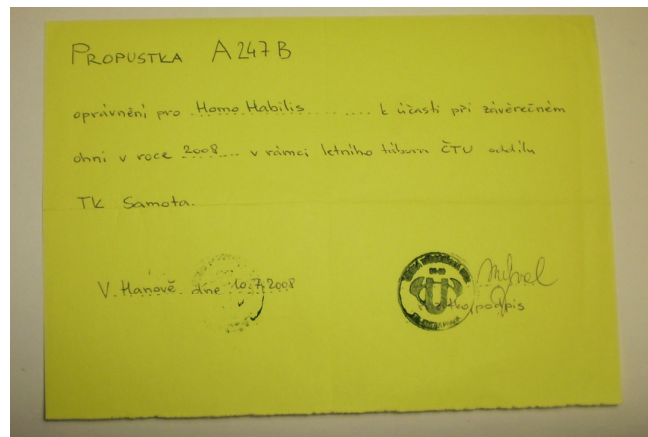 PROPUSTKA A247B
oprávnění pro ..Homo Habilis.......... k účasti při závěrečném
ohni v roce ..2008.... v rámci letního tábora ČTU oddílu
TK Samota.
V..Hanově..dne 10.7.2008
podpis